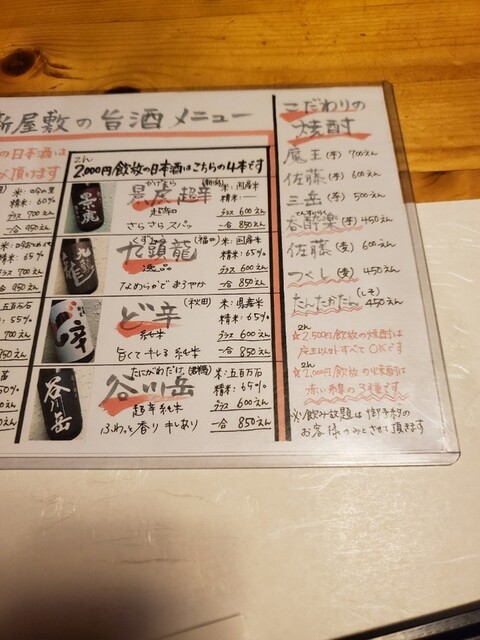 新屋敷の旨酒メニュー
の日本酒は
頂けます
米:吟の里
精米:60%
グラス 700えん
一合 850えん
精米:65%
一合 850えん
五百万石
700えん
850えん
50%
2,000円飲放の日本酒はこちらの4本です
かげとら
景虎 超辛 (新潟)
超辛口
さらさらスパッ
米:国産米
精米:
グラス 600えん
一合 850えん
くずりゅう
九頭龍 (福井)
逸品
なめらかで まろやか
米:国産米
精米:65%
グラス 600えん
一合 850えん
ど辛 (秋田)
純米
旨くてキレる純米
米:県産米
精米:65%
グラス 600えん
一合 850えん
たにがわだけ (群馬)
谷川岳
超辛純米
ふわっと香り キレあり
米:五百万石
精米:65%
グラス 600えん
一合 850えん
景虎
九頭龍
ど辛
谷川岳
こだわりの
焼酎
魔王(芋) 700えん
佐藤(芋) 600えん
三岳(芋) 500えん
呑酔楽(芋) 450えん
佐藤(麦) 600えん
つくし(麦) 450えん
たんたかたん(しそ) 450えん
☆2,500円飲放の焼酎は
魔王以外すべてOKです
☆2,000円飲放の焼酎は
赤い線の3種です
※飲み放題は御予約の
お客様のみとさせて頂きます